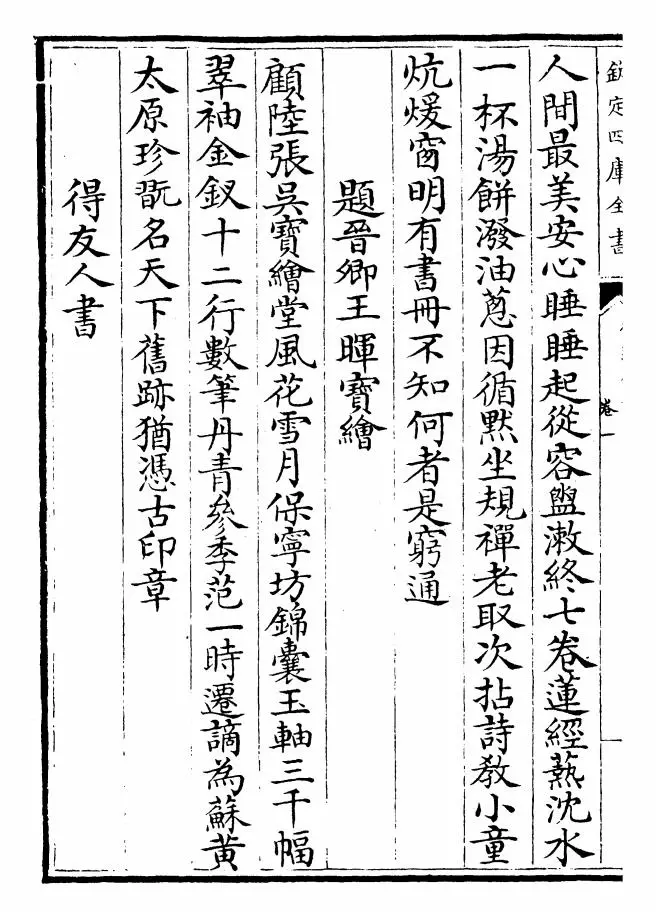 欽定四庫全書
卷一
人間最美安心睡睡起從容盥漱終七卷蓮經爇沈水
一杯湯餅潑油蔥因循默坐規禪老取次拈詩教小童
炕煖窗明有書冊不知何者是窮通
題晉卿王暉寶繪
顧陸張吳寶繪堂風花雪月保寧坊錦囊玉軸三千幅
翠袖金釵十二行數筆丹青參季范一時遷謫為蘇黃
太原珍翫名天下舊跡猶憑古印章
得友人書